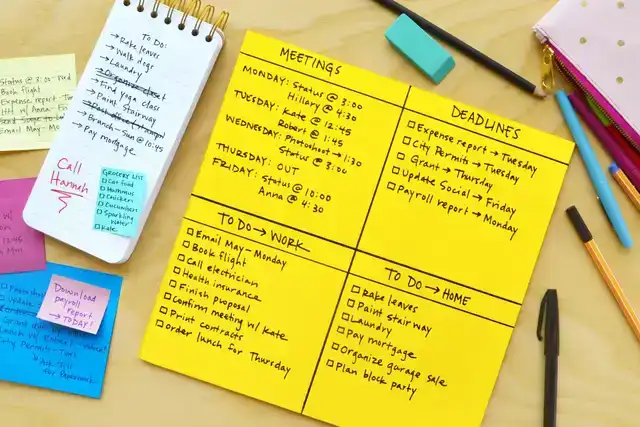 To Do:
→ Rake leaves
→ Walk dogs
→ Laundry
→ Organize closet
→ Find yoga class
→ Paint Stairway
→ Brunch – Sun @ 10:45
→ Pay mortgage
Call
Hannah
GROCERY LIST
Cat food
Hummus
Chicken
Cucumbers
Sparkling
Water
Kale
Status @ 3:00
Book flight
Expense report
Email May – Mo
Download
payroll
report
→ TODAY!
MEETINGS
MONDAY: Status @ 3:00
Hillary @ 4:30
TUESDAY: Kate @ 12:45
Robert @ 1:45
WEDNESDAY: Photoshoot → 1:30
Status @ 3:00
THURSDAY: OUT
FRIDAY: Status @ 10:00
Anna @ 4:30
DEADLINES
Expense report → Tuesday
City Permits → Tuesday
Grant → Thursday
Update Social → Friday
Payroll report → Monday
TO DO → WORK
Email May – Monday
Book flight
Call electrician
Health insurance
Finish proposal
Confirm meeting w/ Kate
Print contracts
Order lunch for Thursday
TO DO → HOME
Rake leaves
Paint stairway
Laundry
Pay mortgage
Organize garage sale
Plan block party